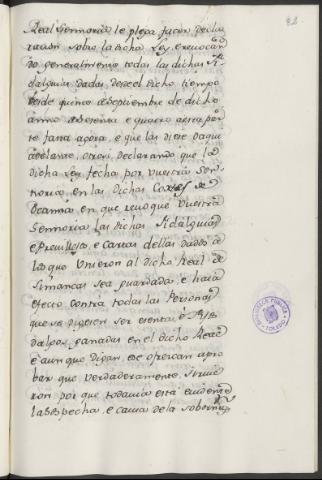 92
Real Sennoria le plega facer decla
racion sobre la dicha Ley, e revocan
do generalmente todas las dichas Fi
dalguias dadas desde el dicho tiempo
desde quince de Septiembre de dicho
anno de setenta e quatro a esta par
te fasta agora, e que las diese de aqui
adelante, otrosi declarando que la
dicha Ley fecha por vuestra Sen
noria en las dichas Cortes de
Ocanna en que revoque vuestra
Sennoria las dichas Fidalguias
e Previllejos, e Cartas dellas dados a
los que vinieron al dicho Real de
Simancas sea guardada, e haia
efecto contra todas las Personas
que se dijeren ser esentas o Fi
dalgos, ganadas en el dicho Real
e aun que digan, e se ofrezcan a pro
bar que verdaderamente sirvie
ron por que todavia está evidente
la sospecha, e causa de la
BIBLIOTECA PUBLICA
TOLEDO